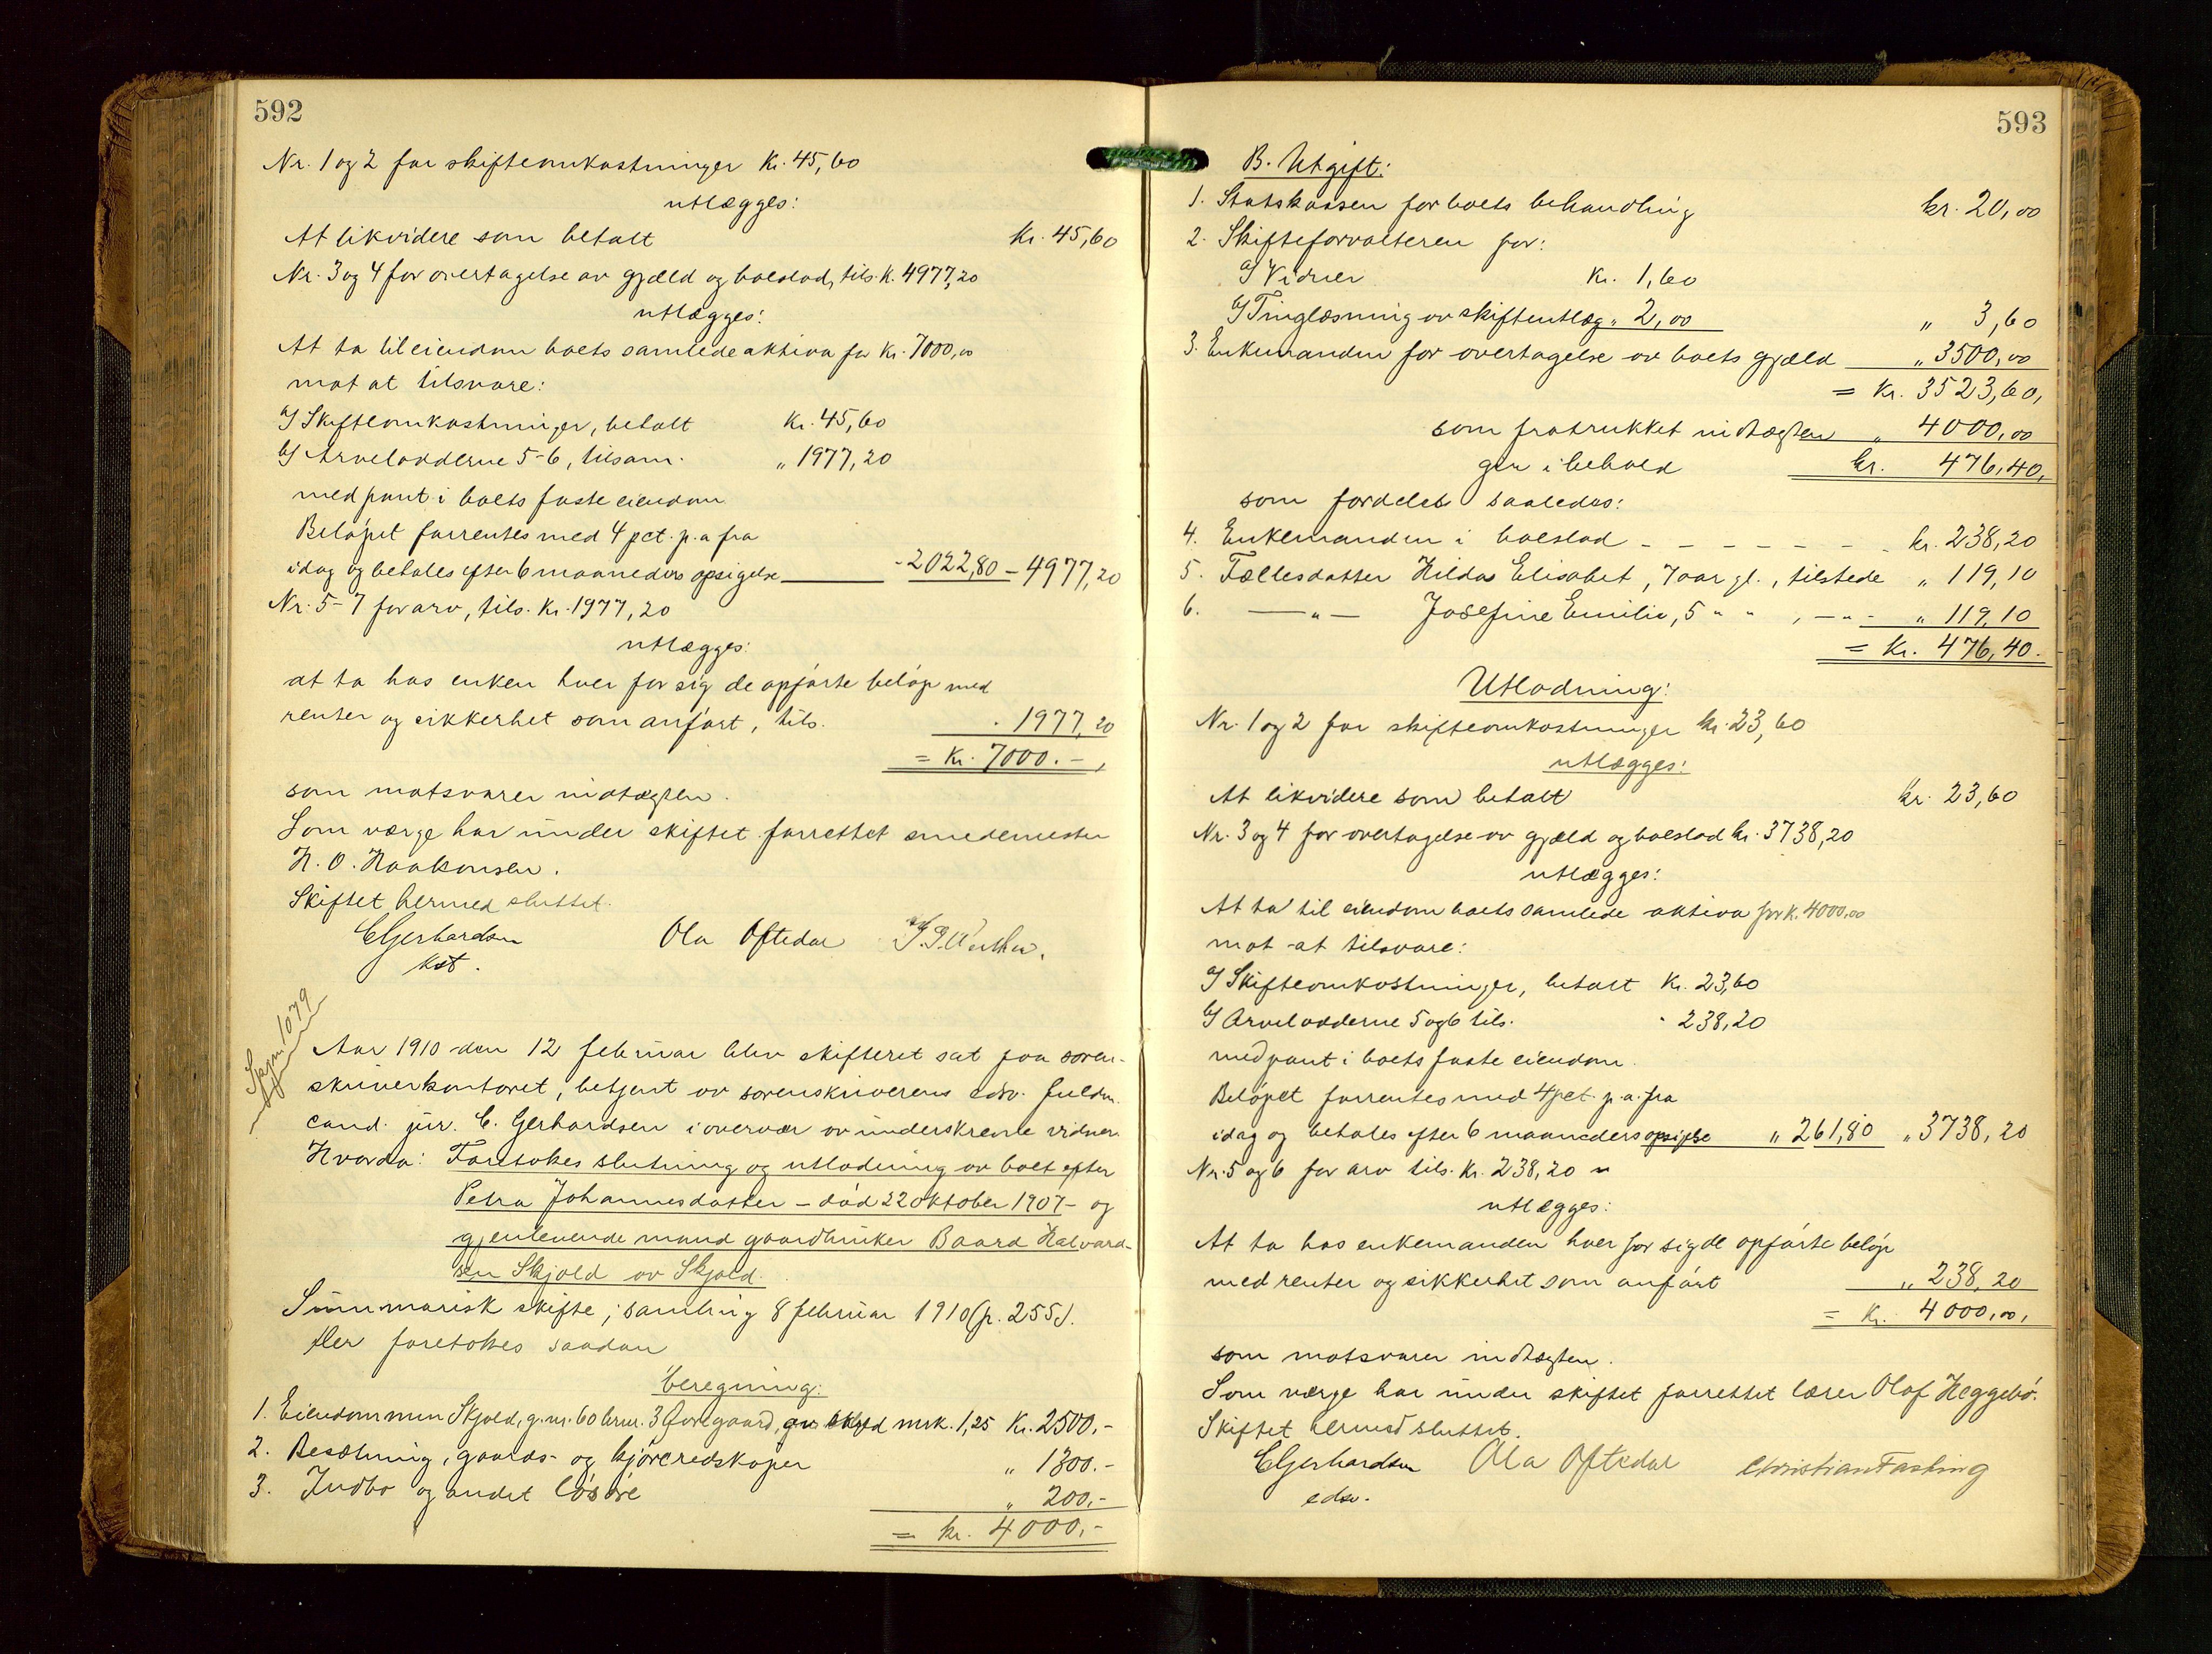 592
Nr. 1 og 2 for skifteomkostninger Kr. 45,60
utlægges:
At likvidere som betalt Kr. 45,60
Nr. 3 og 4 for overtagelse av gjæld og boeslod, tils. K. 4977,20
utlægges:
At ta til eiendom boets samlede aktiva for Kr. 7000,00
mot at tilsvare:
a/ Skifteomkostninger, betalt Kr. 45,60
b/ Arveloddene 5-6, tilsam. " 1977,20
med pant i boets faste eiendom
Beløpet forrentes med 4 pct. p.a fra
idag og betales efter 6 maaneders opsigelse - 2022,80 - 4977,20
Nr. 5-7 for arv, tils. Kr. 1977,20
utlægges:
at ta hos enken hver for sig de opførte beløp med
renter og sikkerhet som anført, tils. . 1977,20
= Kr. 7000.-,
som motsvarer indtægten.
Som værge har under skiftet forrettet smedemester
H. O. Haakonsen.
Skiftet hermed sluttet.
CGerhardsen Ola Oftedal
kst.
1079
Aar 1910 den 12 februar blev skifteret sat paa soren-
skriverkontoret, betjent av sorenskriverens edsv. fuldm.
cand. jur. C. Gerhardsen i overvær av underskrevne vidner.
Hvorda: Foretokes slutning og utlodning av boet efter
Petra Johannesdatter - død 22 oktober 1907 - og
gjenlevende mand gaardbruker Baard Halvard-
sen Skjold av Skjold.
Summarisk skifte; samling 8 februar 1910 (p. 255).
Der foretokes saadan
beregning:
1. Eiendommen Skjold, g.nr. 60 brnr. 3 Øvregaard, av skyld mrk. 1,25 Kr. 2500.-
2. Besætning, gaards- og kjøreredskaper " 1300.-
3. Indbo og andet løsøre " 200.-
= kr. 4000.-
593
B. Utgift:
1. Statskassen for boets behandling kr. 20,00
2. Skifteforvalteren for:
a/ Vidner Kr. 1,60
b/ Tinglæsning av skifteutlæg " 2,00 " 3,60
3. Enkemanden for overtagelse av boets gjæld " 3500,00
= Kr. 3523,60,
som fratrukket indtægten " 4000,00
gir i behold kr. 476,40,
som fordeles saaledes:
4. Enkemanden i boeslod - - - - - - - kr. 238,20
5. Fællesdatter Hilda Elisabet, 7 aar gl., tilstede " 119,10
6. —"— Josefine Emilie, 5 " " , —"— " 119,10
= Kr. 476,40.
Utlodning:
Nr. 1 og 2 for skifteomkostninger kr. 23,60
utlægges:
At likvidere som betalt kr. 23,60
Nr. 3 og 4 for overtagelse av gjæld og boeslod kr. 3738,20
utlægges:
At ta til eiendom boets samlede aktiva for K. 4000,00
mot at tilsvare:
a/ Skifteomkostninger, betalt Kr. 23,60
b/ Arveloddene 5 og 6 tils. " 238,20
med pant i boets faste eiendom.
Beløpet forrentes med 4 pct. p.a. fra
idag og betales efter 6 maaneders opsigelse " 261,80 " 3738,20
Nr. 5 og 6 for arv tils. Kr. 238,20
utlægges:
At ta hos enkemanden hver for sig de opførte beløp
med renter og sikkerhet som anført " 238,20
= Kr. 4000,00,
som motsvarer indtægten.
Som værge har under skiftet forrettet lærer Olof Heggebø.
Skiftet hermed sluttet.
CGerhardsen Ola Oftedal Christian Fasting
edsv.